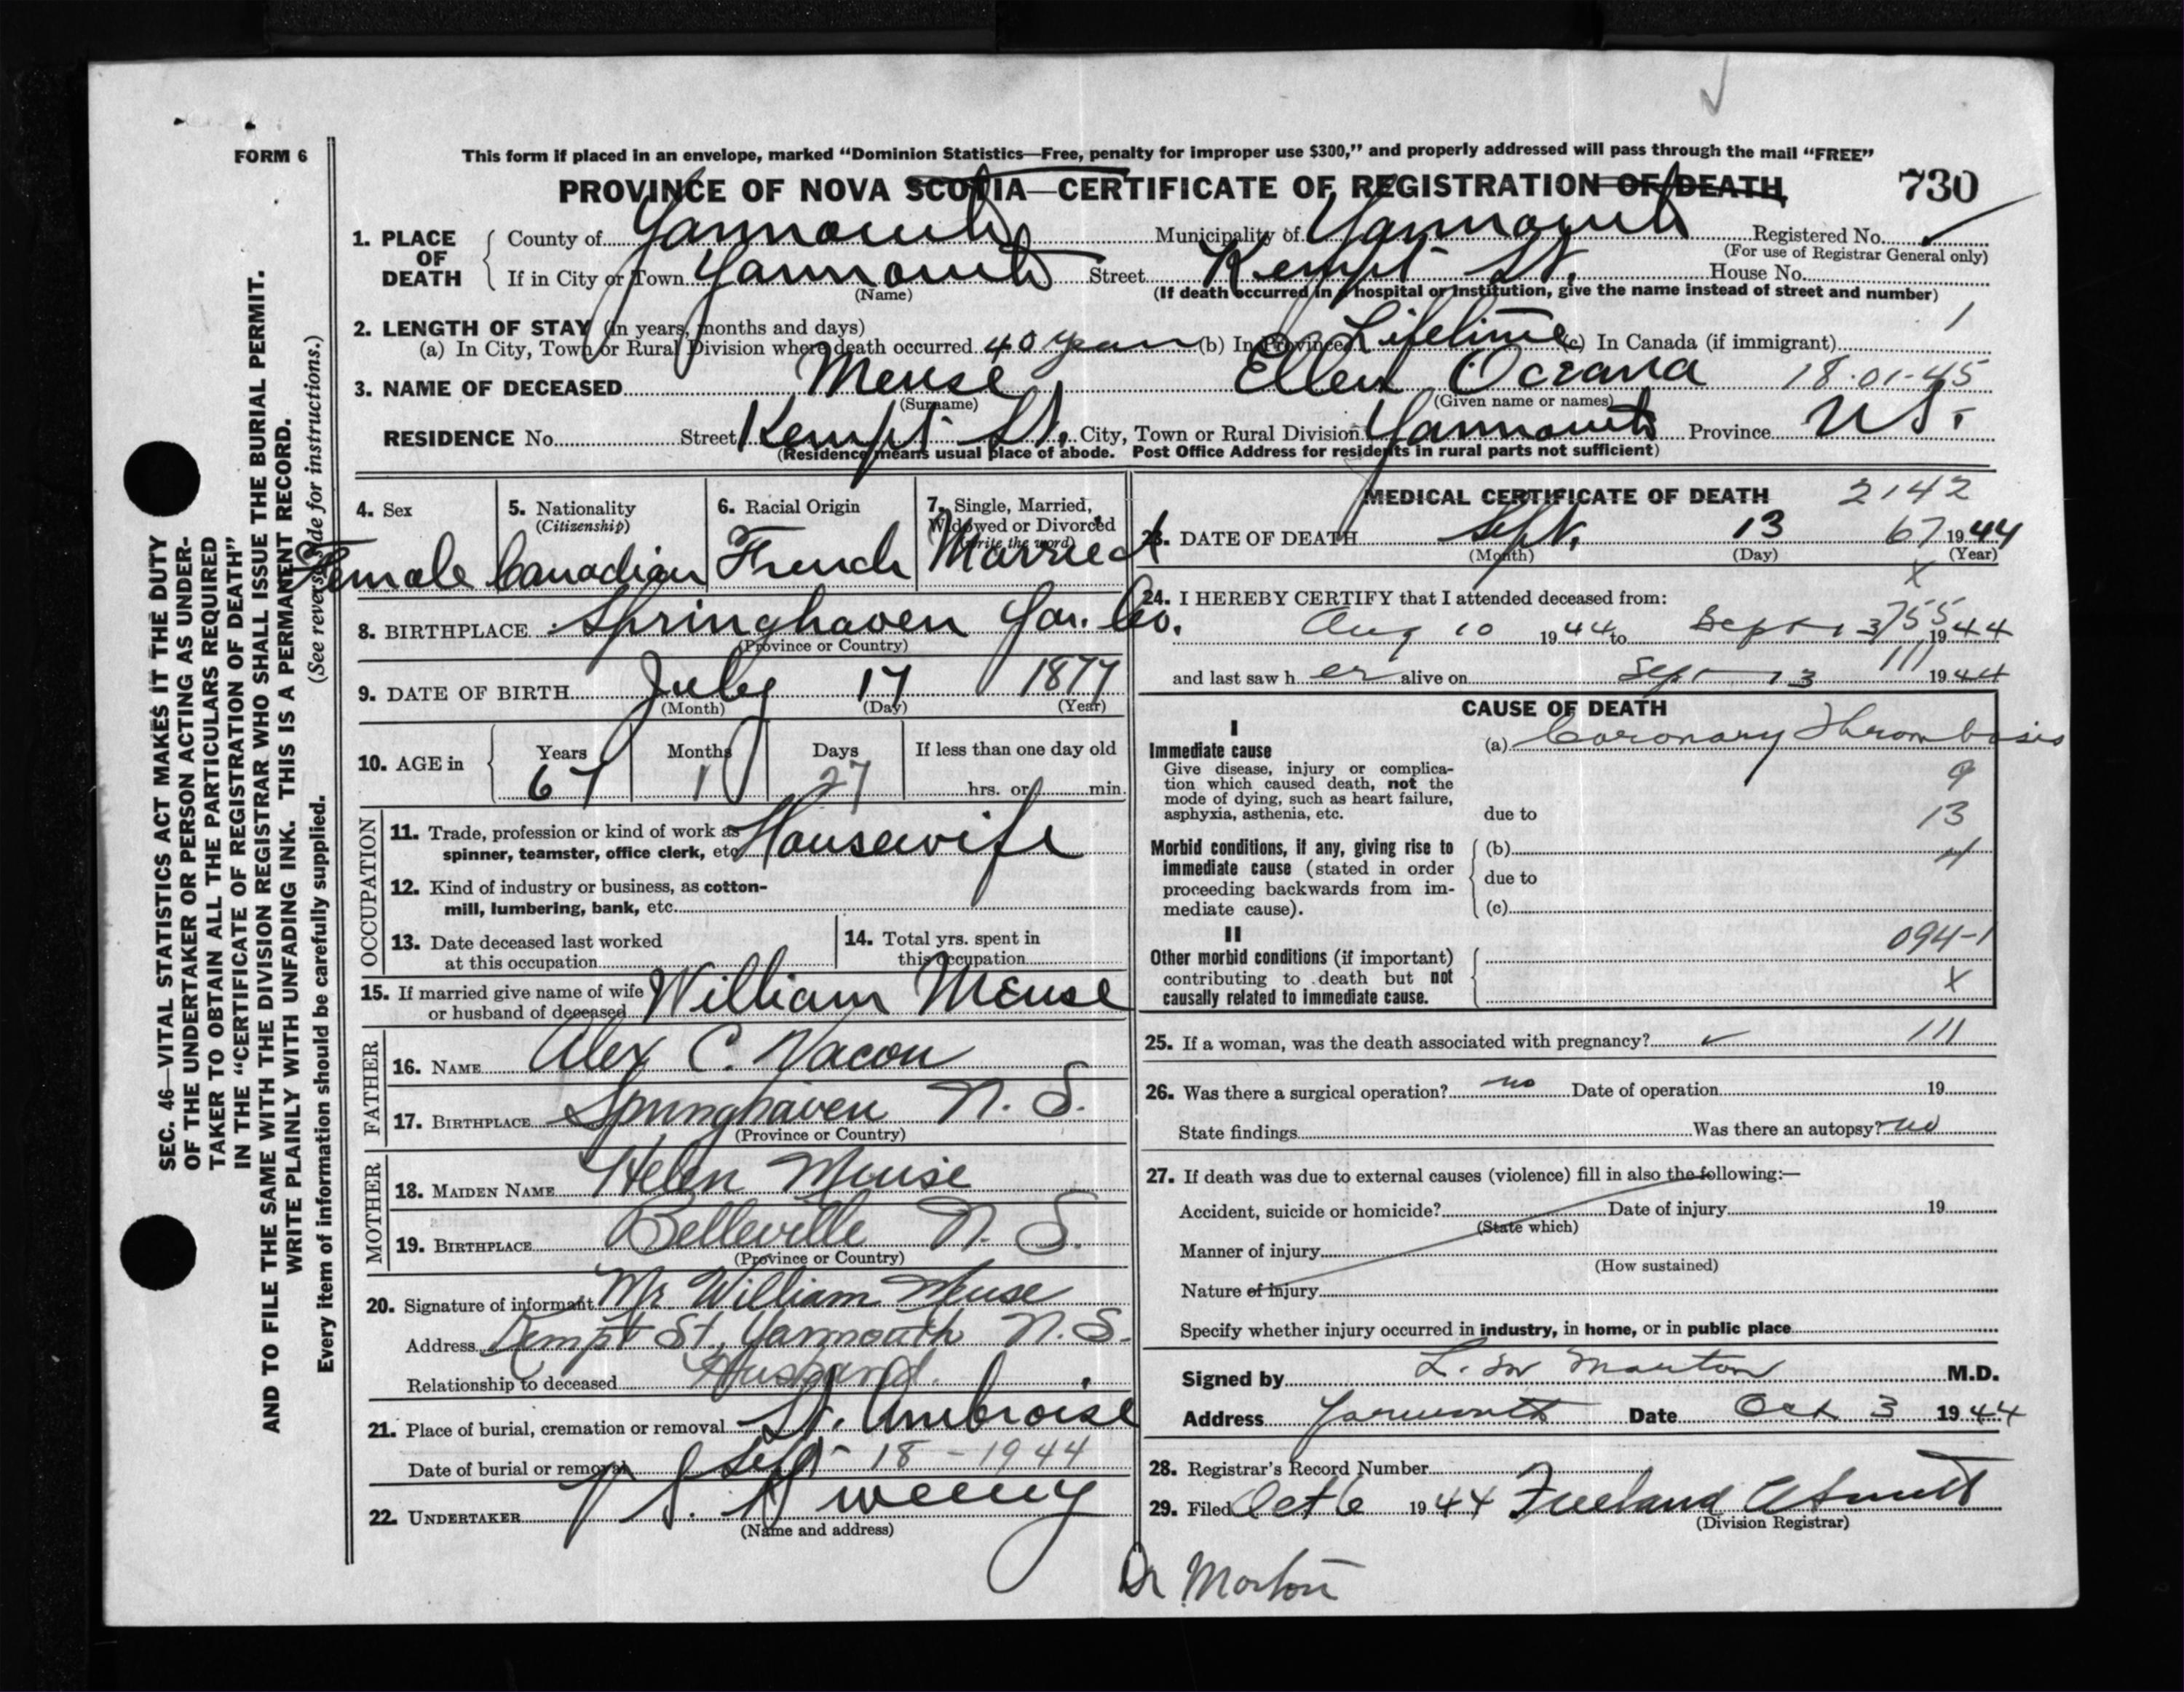 FORM 6
This form if placed in an envelope, marked “Dominion Statistics—Free, penalty for improper use $300,” and properly addressed will pass through the mail “FREE”
PROVINCE OF NOVA SCOTIA—CERTIFICATE OF REGISTRATION OF DEATH 730
1. PLACE OF DEATH County of Yarmouth Municipality of Yarmouth Registered No.
(For use of Registrar General only)
If in City or Town Yarmouth Street Kempt St. House No.
(Name) (If death occurred in a hospital or institution, give the name instead of street and number)
2. LENGTH OF STAY (in years, months and days) 1
(a) In City, Town or Rural Division where death occurred 40 years (b) In Province Lifetime (c) In Canada (if immigrant)
3. NAME OF DECEASED Meuse, Ellen Oceana 18-01-45
(Surname) (Given name or names)
RESIDENCE No. Street Kempt St. City, Town or Rural Division Yarmouth Province N.S.
(Residence means usual place of abode. Post Office Address for residents in rural parts not sufficient)
4. Sex 5. Nationality (Citizenship) 6. Racial Origin 7. Single, Married, Widowed or Divorced (write the word)
Female Canadian French Married
8. BIRTHPLACE Springhaven Yar. Co.
(Province or Country)
9. DATE OF BIRTH July 17 1877
(Month) (Day) (Year)
10. AGE in Years Months Days If less than one day old
67 1 27 hrs. or min.
OCCUPATION
11. Trade, profession or kind of work as
spinner, teamster, office clerk, etc. Housewife
12. Kind of industry or business, as cotton-
mill, lumbering, bank, etc.
13. Date deceased last worked
at this occupation
14. Total yrs. spent in
this occupation
15. If married give name of wife
or husband of deceased William Meuse
FATHER
16. NAME Alex C. Vacon
17. BIRTHPLACE Springhaven N. S.
(Province or Country)
MOTHER
18. MAIDEN NAME Helen Muise
19. BIRTHPLACE Belleville N. S.
(Province or Country)
20. Signature of informant Mr William Meuse
Address Kempt St. Yarmouth N. S.
Relationship to deceased Husband.
21. Place of burial, cremation or removal St. Ambroise
Date of burial or removal Sept - 18 - 1944
22. UNDERTAKER V. S. Sweeny
(Name and address)
MEDICAL CERTIFICATE OF DEATH 2142
23. DATE OF DEATH Sept. 13 67 1944
(Month) (Day) (Year)
X
24. I HEREBY CERTIFY that I attended deceased from:
Aug 10 1944 to Sept 13 1944
755
and last saw her alive on Sept 13 1944
111
CAUSE OF DEATH
I
Immediate cause
Give disease, injury or complica-
tion which caused death, not the
mode of dying, such as heart failure,
asphyxia, asthenia, etc.
(a) Coronary Thrombosis
9
due to 13
Morbid conditions, if any, giving rise to
immediate cause (stated in order
proceeding backwards from im-
mediate cause).
(b) 4
due to
(c)
II
Other morbid conditions (if important)
contributing to death but not
causally related to immediate cause.
094-1
X
25. If a woman, was the death associated with pregnancy? 111
26. Was there a surgical operation? no Date of operation 19
State findings Was there an autopsy? no
27. If death was due to external causes (violence) fill in also the following:—
Accident, suicide or homicide? Date of injury 19
(State which)
Manner of injury
(How sustained)
Nature of injury
Specify whether injury occurred in industry, in home, or in public place
Signed by L. M Morton M.D.
Address Yarmouth Date Oct 3 1944
28. Registrar's Record Number
29. Filed Oct 6 1944 Freeland
(Division Registrar)
Dr Morton
SEC. 46—VITAL STATISTICS ACT MAKES IT THE DUTY
OF THE UNDERTAKER OR PERSON ACTING AS UNDER-
TAKER TO OBTAIN ALL THE PARTICULARS REQUIRED
IN THE “CERTIFICATE OF REGISTRATION OF DEATH”
AND TO FILE THE SAME WITH THE DIVISION REGISTRAR WHO SHALL ISSUE THE BURIAL PERMIT.
WRITE PLAINLY WITH UNFADING INK. THIS IS A PERMANENT RECORD.
Every item of information should be carefully supplied. (See reverse side for instructions.)